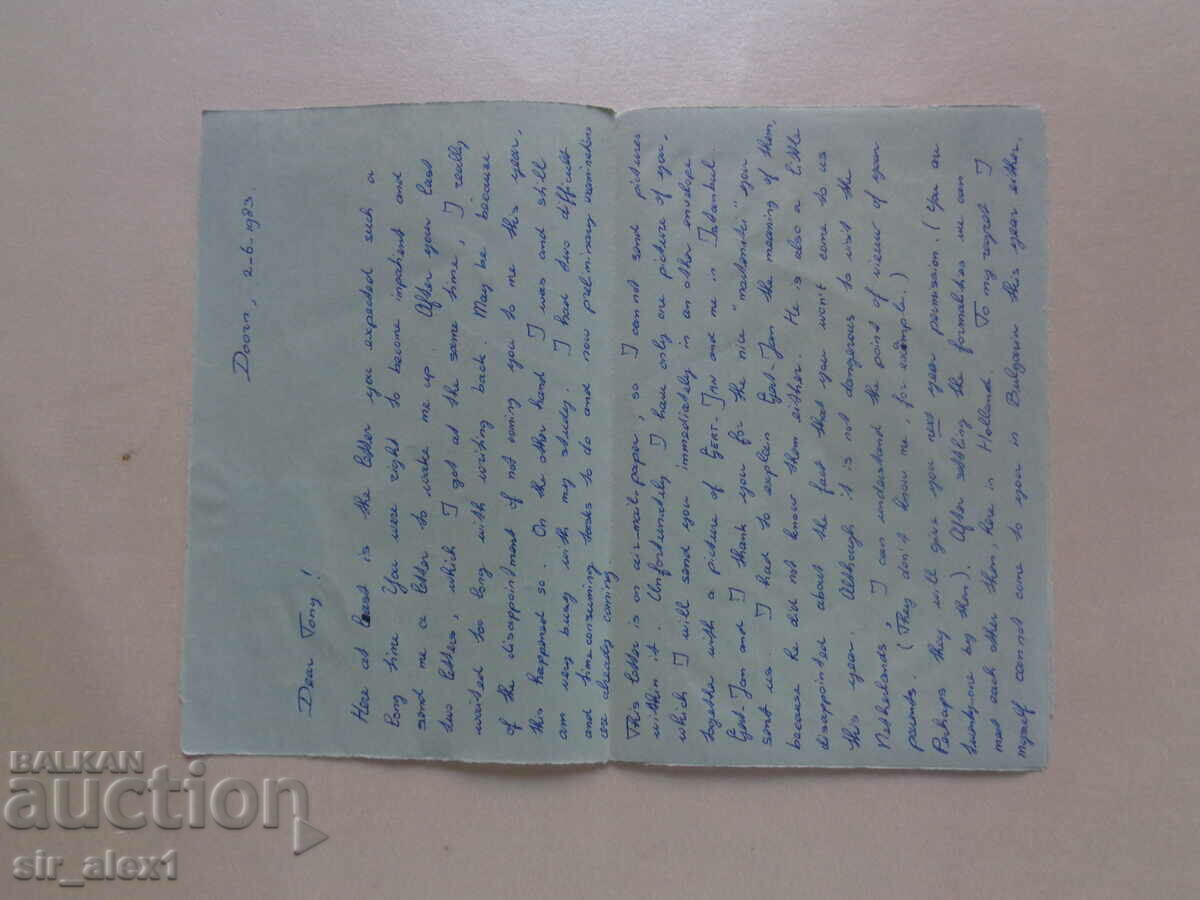 Doorn, 2-6-1983.
Dear Tony!
Here at least is the letter you expected such a
long time. You were right to become impatient and
send me a letter to wake me up. After you last
two letters, which I got at the same time, I really
waited too long with writing back. May be because
of the disappointment of not coming you to me this year,
this happened so. On the other hand I was and still
am very busy with my study. I had two difficult
and time consuming tasks to do and now preliminary examinations
are already coming
This letter is on air-mail-paper, so I can not send pictures
within it. Unfortunately I have only one picture of you,
which I will send you immediately in an other envelope
together with a picture of GERT-JAN and me in Istanbul.
Gert-Jan and I thank you for the nice "martenski" you
sent us. I had to explain Gert-Jan the meaning of them,
because he did not know them either. He is also a little
disappointed about the fact that you won't come to us
this year. Although it is not dangerous to visit the
Netherlands, I can understand the point of viewer of your
parents. (They don't know me, for example.)
Perhaps they will give you next year permission. (You are
twenty-one by then). After settling the formalities we can
meet each other then, here in Holland. To my regret I
myself can not come to you in Bulgaria this year either,
BALKAN
auction
sir_alex1